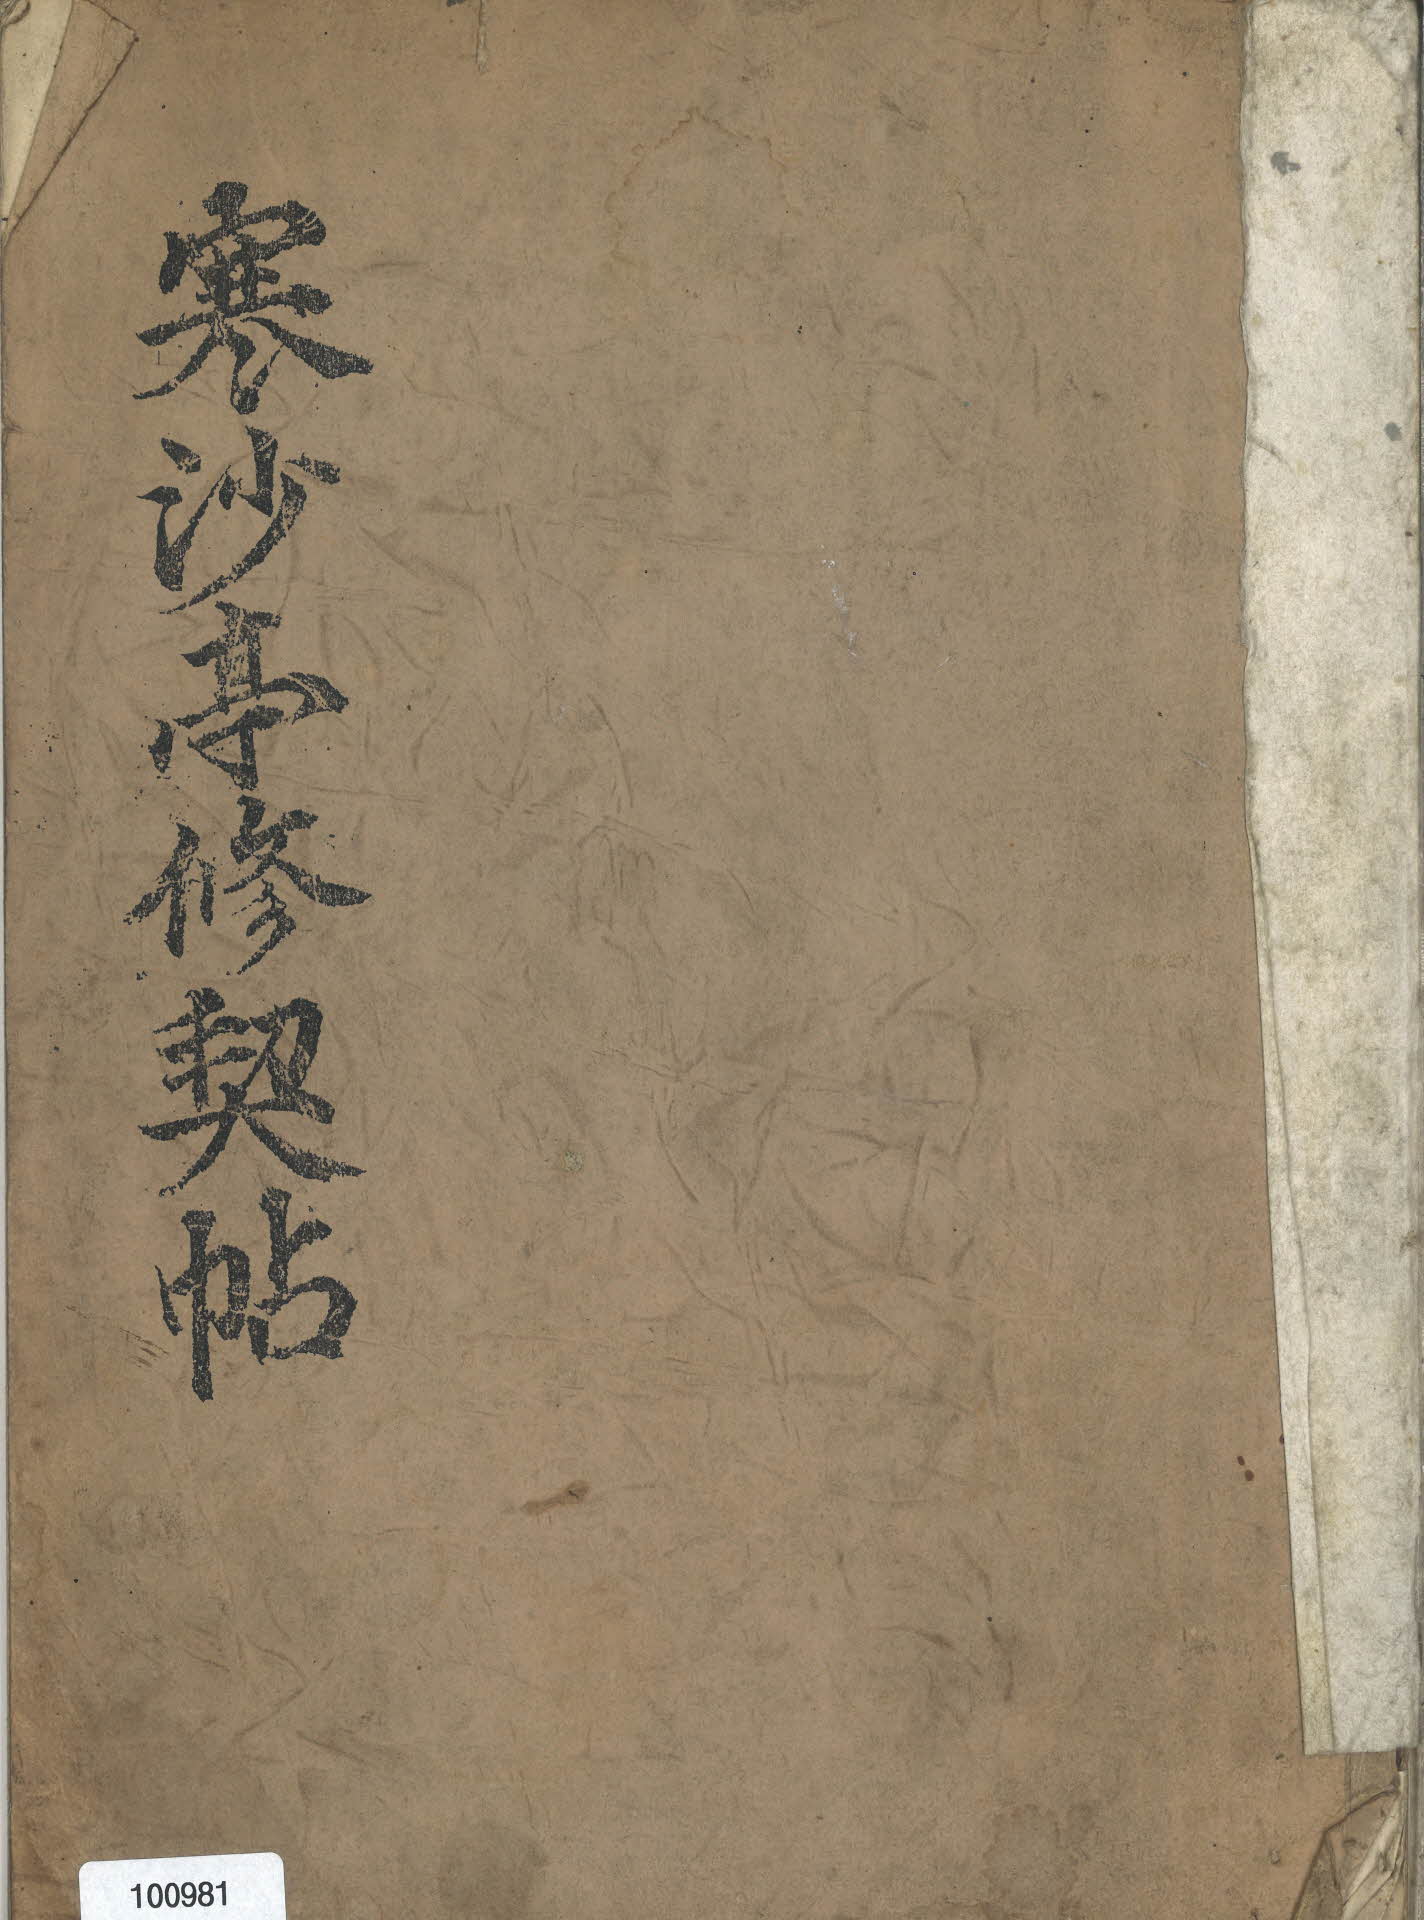 寒沙亭修契帖
100981